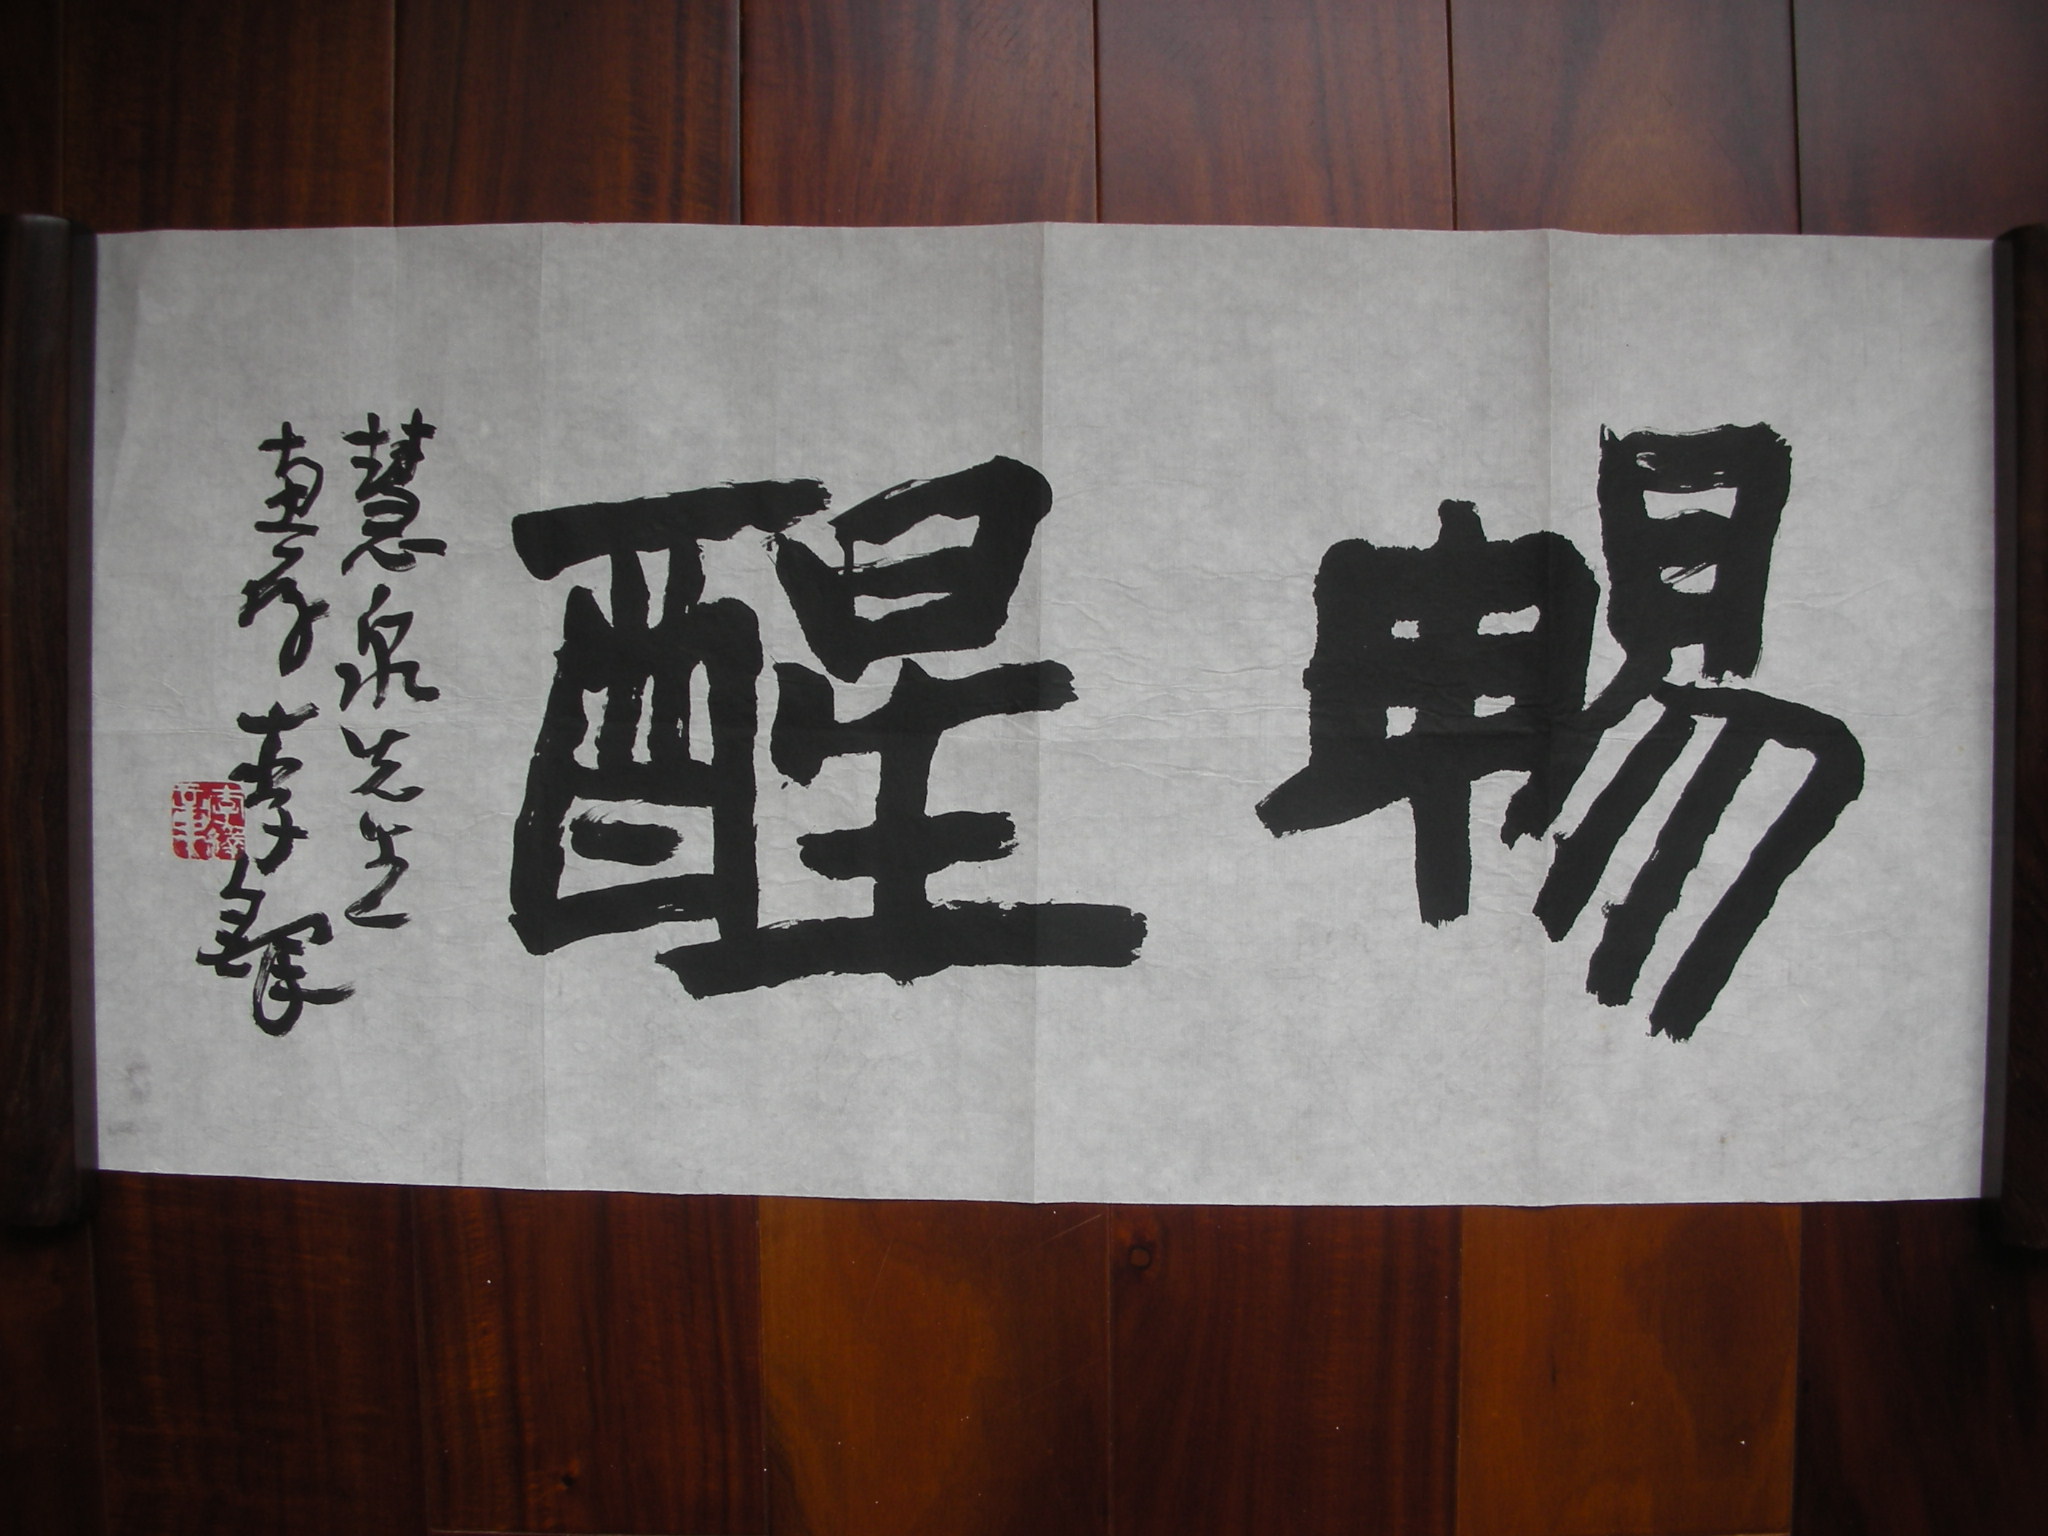 暢醒
慧泉先生
惠存 李鐸